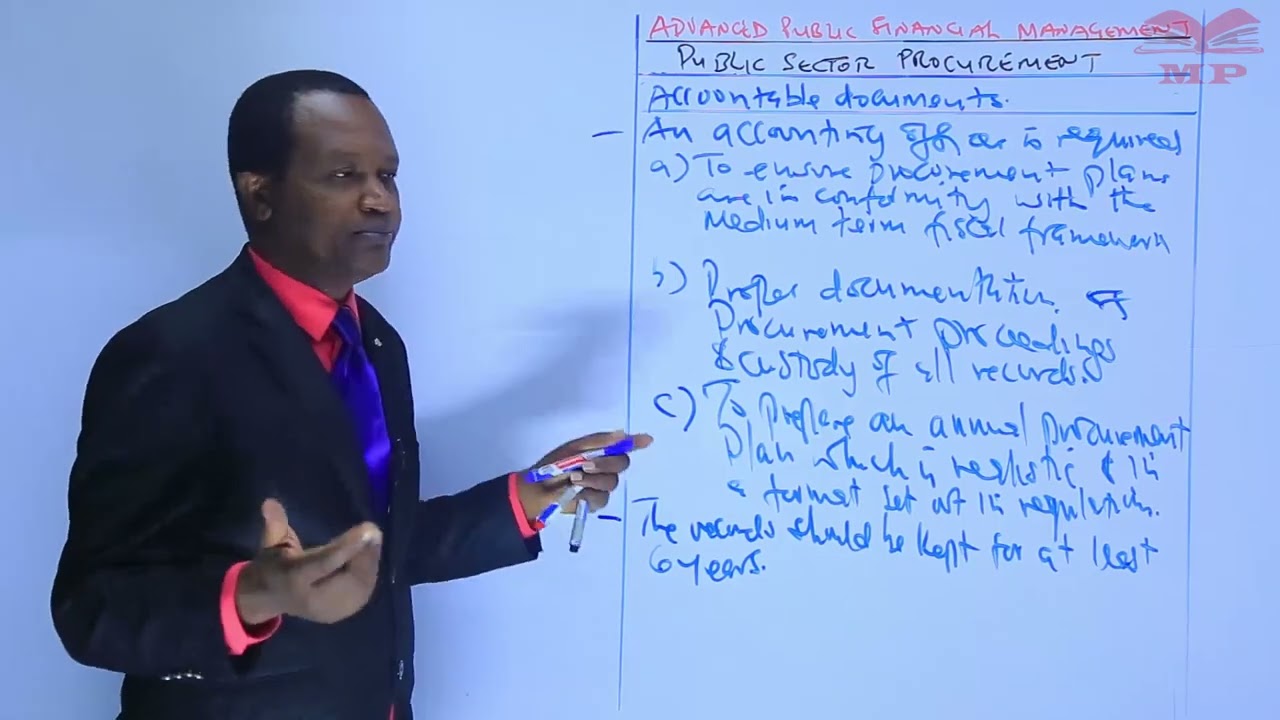 ADVANCED PUBLIC FINANCIAL MANAGEMENT
MP
PUBLIC SECTOR PROCUREMENT
Accountable documents.
- An accounting officer is required
a) To ensure procurement plans
are in conformity with the
medium term fiscal framework
b) Proper documentation of
Procurement proceedings
& custody of all records.
c) To prepare an annual procurement
Plan which is realistic & in
a format set out in regulation.
- The records should be kept for at least
6 years.